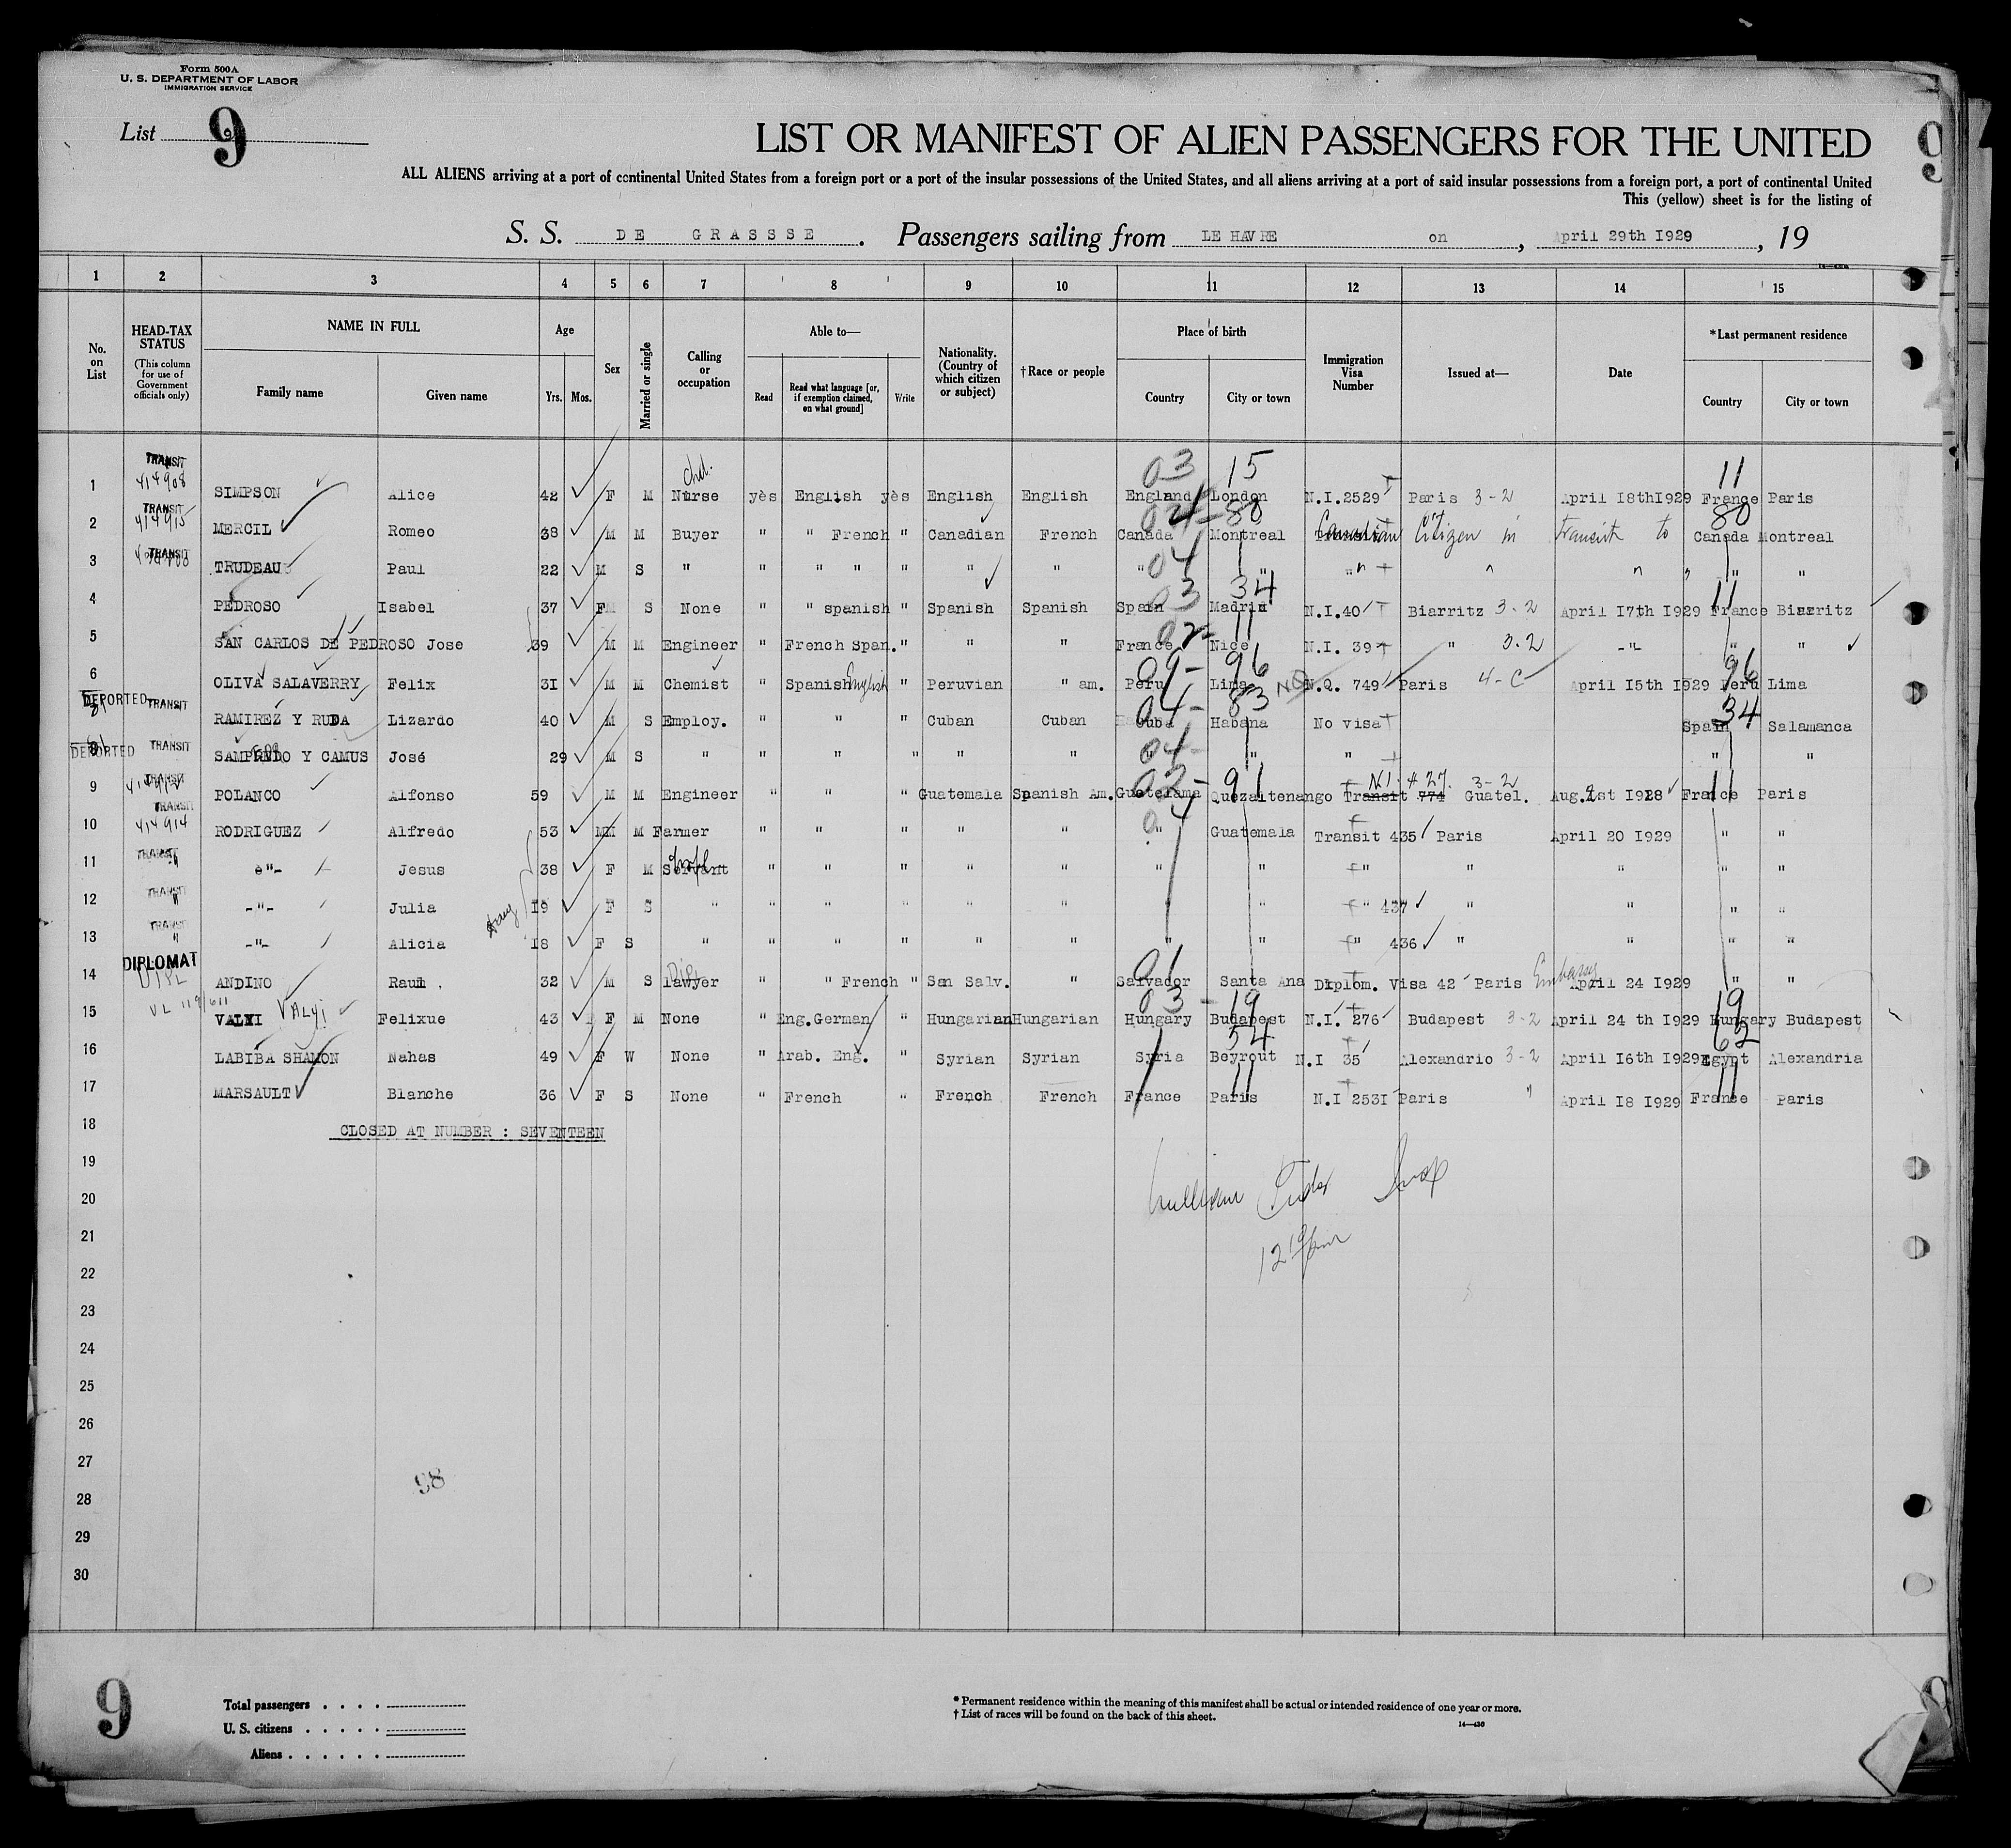 Form 500A
U. S. DEPARTMENT OF LABOR
IMMIGRATION SERVICE
List 9
LIST OR MANIFEST OF ALIEN PASSENGERS FOR THE UNITED
ALL ALIENS arriving at a port of continental United States from a foreign port or a port of the insular possessions of the United States, and all aliens arriving at a port of said insular possessions from a foreign port, a port of continental United
This (yellow) sheet is for the listing of
S. S. DE GRASSSE . Passengers sailing from LE HAVRE on , April 29th I929 , 19
1 2 3 4 5 6 7 8 9 10 11 12 13 14 15
No. on List HEAD-TAX STATUS (This column for use of Government officials only) NAME IN FULL Family name Given name Age Yrs. Mos. Sex Married or single Calling or occupation Able to— Read Read what language [or, if exemption claimed, on what ground] Write Nationality. (Country of which citizen or subject) †Race or people Place of birth Country City or town Immigration Visa Number Issued at— Date *Last permanent residence Country City or town
TRANSIT chd. 03 15 11
1 414908 SIMPSON Alice 42 F M Nurse yès English yès English English England London N.I.2529 Paris 3-2 April I8thI929 France Paris
TRANSIT 04-80 80
2 414915 MERCIL Romeo 38 M M Buyer " " French " Canadian French Canada Montreal Canadian Citizen in transit to Canada Montreal
TRANSIT 04
3 TRUDEAU Paul 22 M S " " " " " " " " " " " " " "
03 34 11
4 PEDROSO Isabel 37 F S None " " spanish " Spanish Spanish Spain Madrid N.I.40 Biarritz 3-2 April I7th I929 France Biarritz
02- 11
5 SAN CARLOS DE PEDROSO Jose 39 M M Engineer " French Span. " " " France Nice N.I. 39 " 3.2 -"- " "
09- 96 96
6 OLIVA SALAVERRY Felix 3I M M Chemist " Spanish English " Peruvian " am. Peru Lima N.Q. 749 Paris 4-C April I5th I929 Peru Lima
DEPORTED TRANSIT 04- 83 34
RAMIREZ Y RUDA Lizardo 40 M S Employ. " " Cuban Cuban Cuba Habana No visa Spain Salamanca
DEPORTED TRANSIT 04-
SAMPEDO Y CAMUS José 29 M S " " " " " " " " " " "
TRANSIT 02- 91 N.I. 427. 3-2 11
9 POLANCO Alfonso 59 M M Engineer " " " Guatemala Spanish Am. Guatelama Quezaltenango Transit 774 Guatel. Aug.2st I928 France Paris
TRANSIT
10 414914 RODRIGUEZ Alfredo 53 M M Farmer " " " " " " Guatemala Transit 435 Paris April 20 I929 " "
TRANSIT
11 " -"- Jesus 38 F M Servant " " " " " " " " " " " "
TRANSIT
12 " -"- Julia I9 F S " " " " " " " " " 437 " " " "
TRANSIT
13 " -"- Alicia I8 F S " " " " " " " " " 436 " " " "
DIPLOMAT DIPL 01 Embassy
14 DIPL ANDINO Raul . 32 M S lawyer " " French " San Salv. " Salvador Santa Ana Diplom. Visa 42 Paris April 24 I929 " "
03 - 19 19
15 VALYI VALYi Felixue 43 F M None " Eng.German " Hungarian Hungarian Hungary Budapest N.I. 276 Budapest 3-2 April 24 th I929 Hungary Budapest
54 62
16 LABIBA SHAMON Nahas 49 F W None " Arab. Eng. " Syrian Syrian Syria Beyrout N.I 35 Alexandrio 3-2 April I6th I929 Egypt Alexandria
11 11
17 MARSAULT Blanche 36 F S None " French " French French France Paris N.I 253I Paris " April I8 I929 France Paris
18 CLOSED AT NUMBER : SEVENTEEN
19
20
21
22
23
24
25
26
27
28 98
29
30
9
Total passengers . . . .
U. S. citizens . . . . .
Aliens . . . . . .
* Permanent residence within the meaning of this manifest shall be actual or intended residence of one year or more.
† List of races will be found on the back of this sheet.
14—430